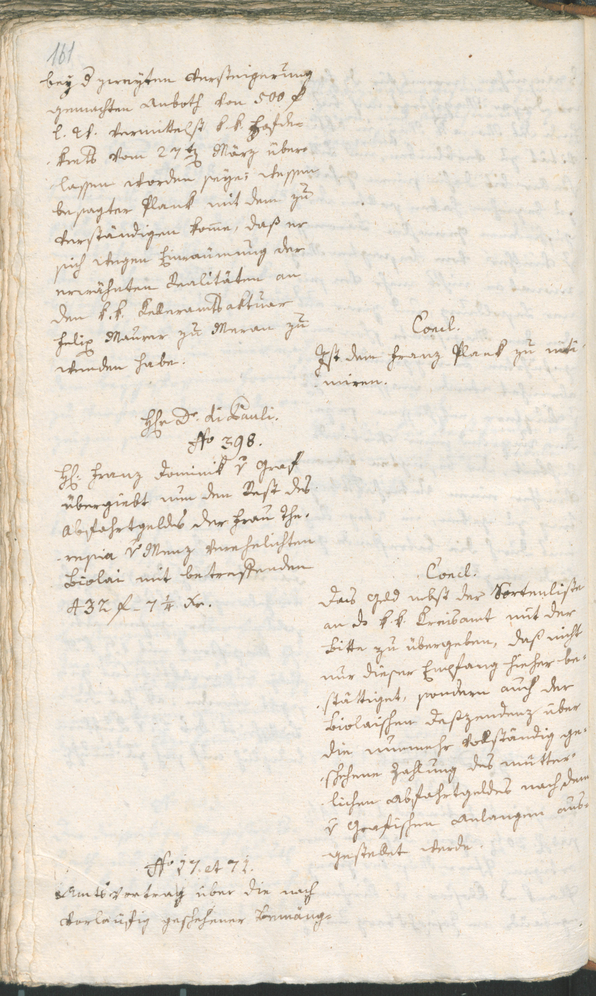 161
bey d zweyten Versteigerung
gemachten Anboth von 500 f
l. W. vermittelst k. k. Hofde-
krets vom 27ten März über-
lassen worden seye; wessen
besagter Plank mit dem zu
verständigen komme, daß er
sich wegen Einräumung der
erwähnten Realitäten an
den k. k. Kelleramtsaktuar
Felix Maurer zu Meran zu
wenden habe.
Concl.
Ist dem Franz Plank zu inti-
miren.
Hr Dr. di Pauli.
No 398.
Hr. Franz Dominik v Graf
übergiebt nun den Rest des
Abfahrtgeldes der Frau The-
resia v Menz verehelichten
Biolai mit betreffenden
432 f 74 Xr.
Concl.
Das Geld nebst der Sortenliste
an d k. k. Kreisamt mit der
Bitte zu übergeben, daß nicht
nur dieser Empfang hieher be-
stättiget, sondern auch der
Biolaischen Deszendenz über
die nunmehr vollständig ge-
schehene Zahlung des mütter-
lichen Abfahrtgeldes nach dem
v Grafischen Anlangen aus-
gestellt werde.
No 17. et 71.
Amtsvortrag über die nach
vorläufig geschehener Bemäng-